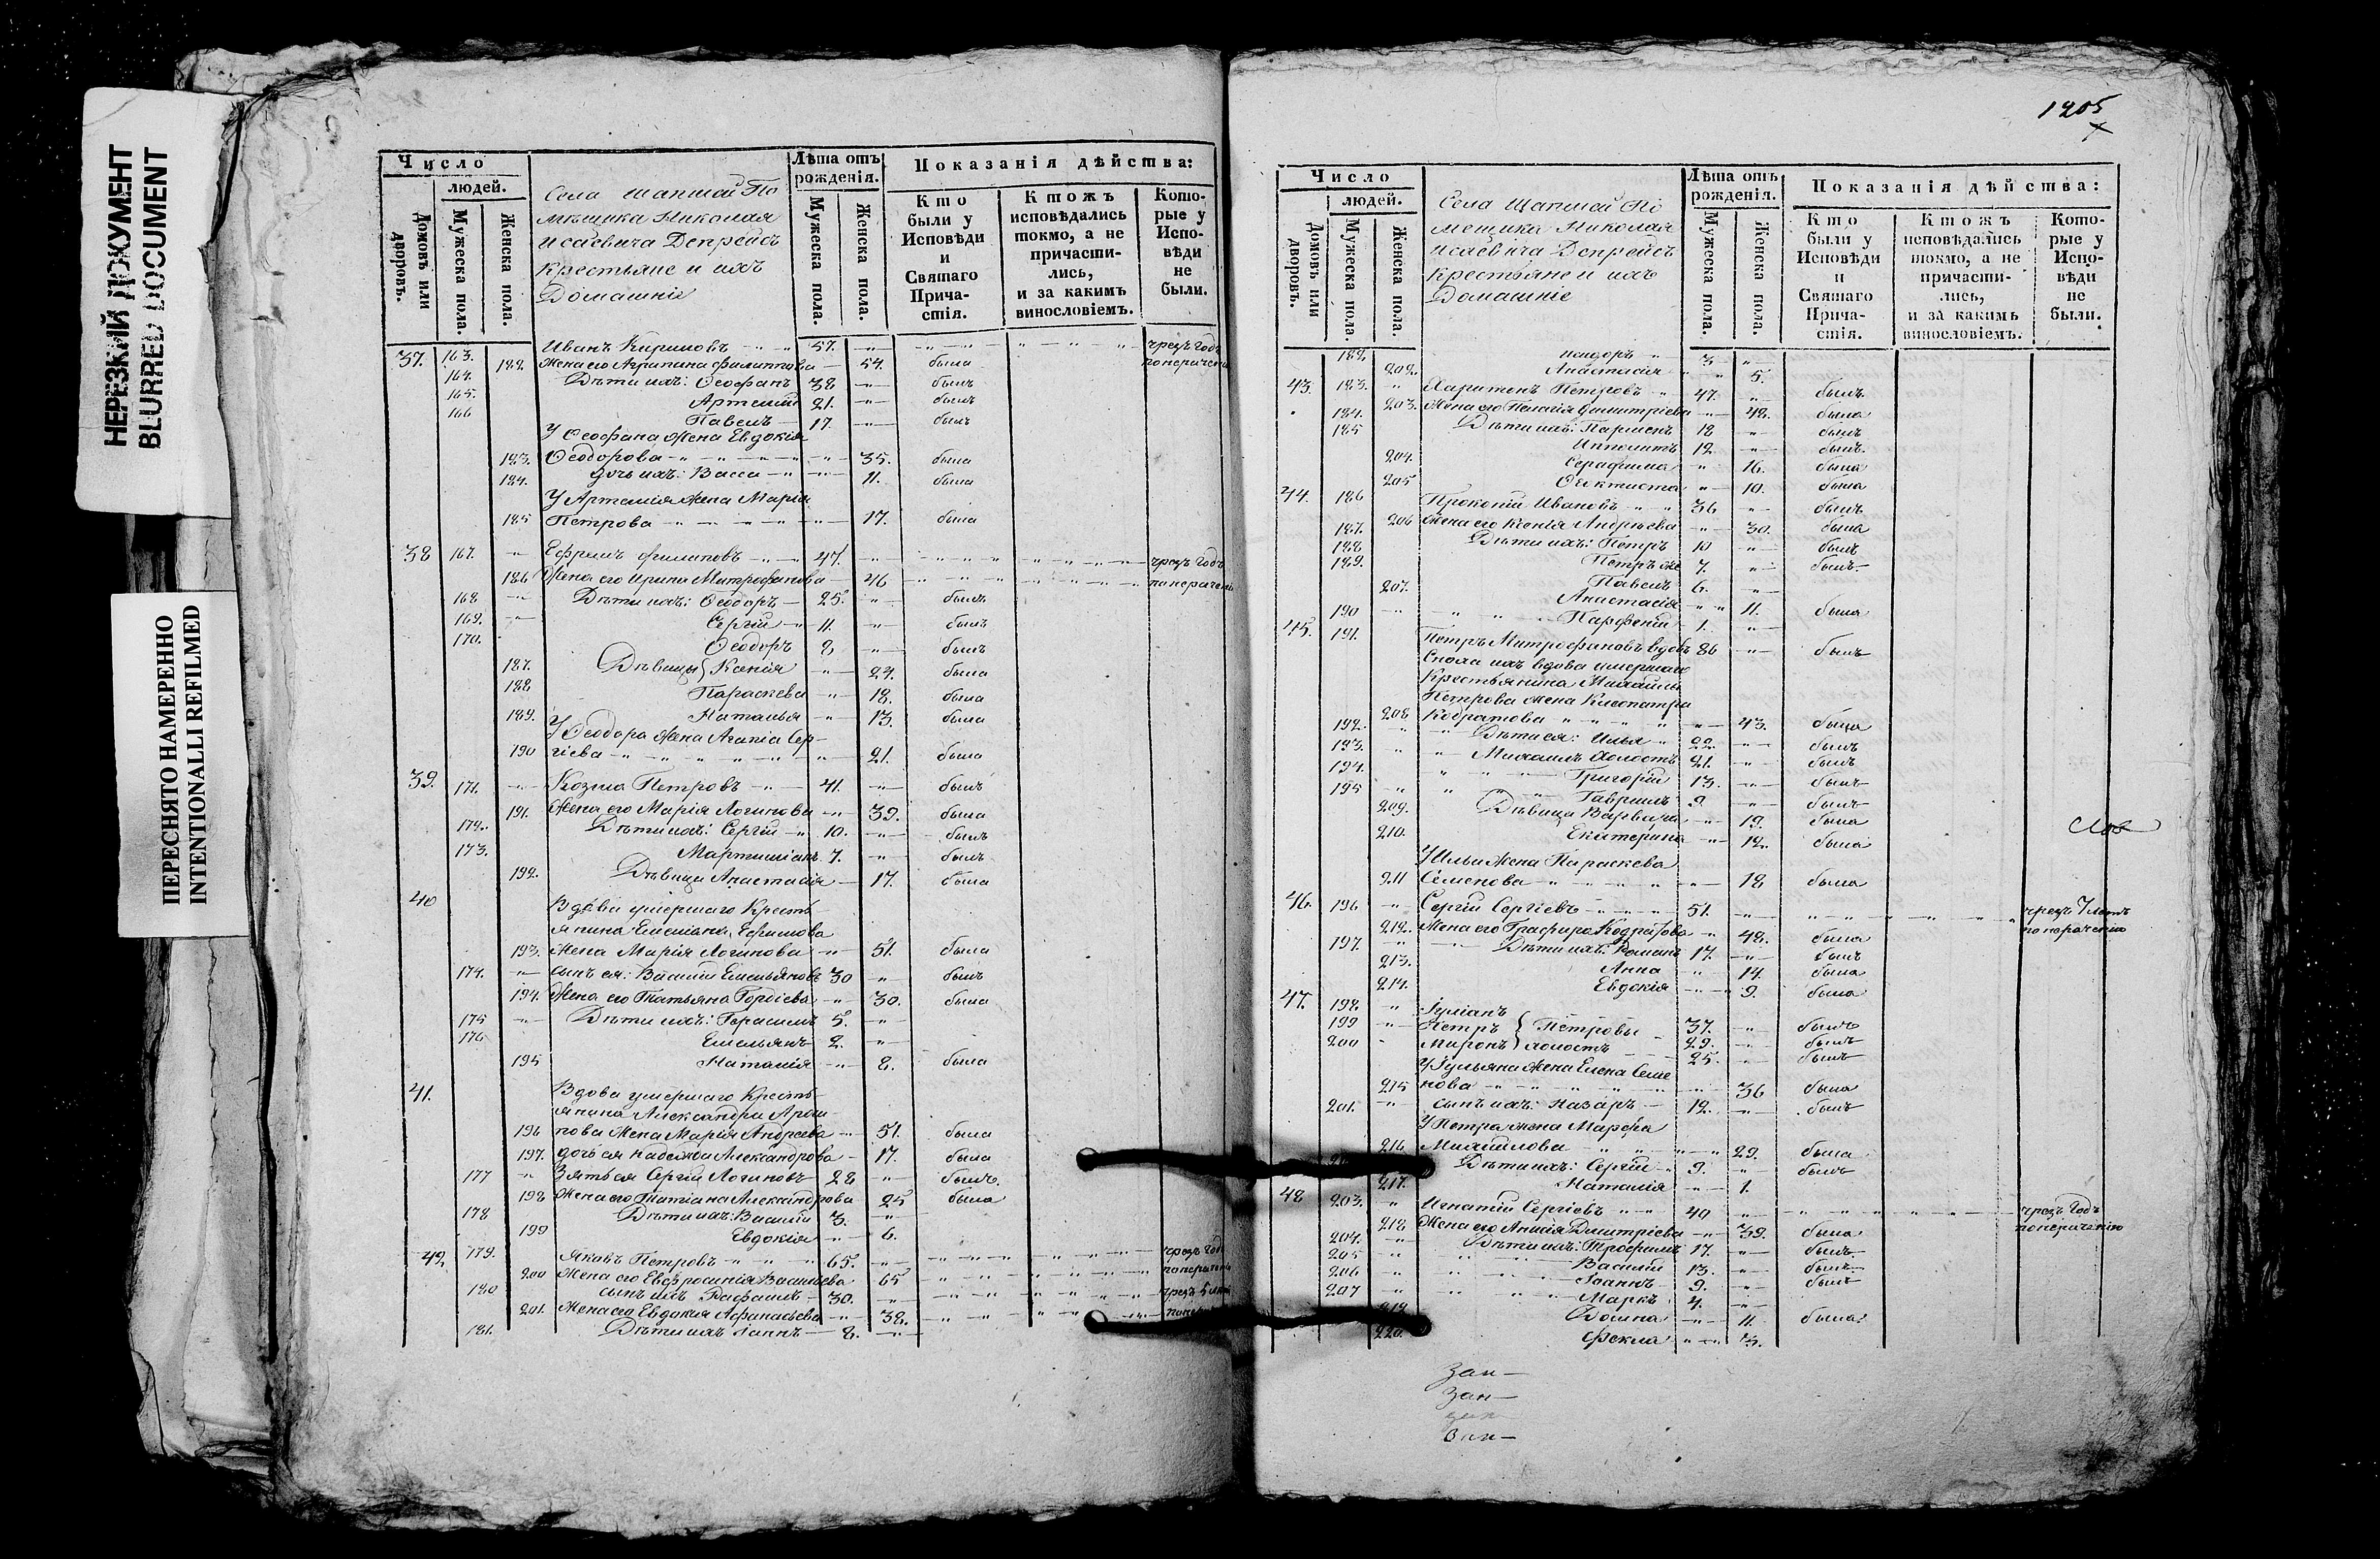 НЕРЕЗКИЙ ДОКУМЕНТ
BLURRED DOCUMENT
ПЕРЕСНЯТО НАМЕРЕННО
INTENTIONALLI REFILMED
Число
людей.
Домовъ или дворовъ.
Мужеска пола.
Женска пола.
Села
мѣщика Николая
Исаевича Депрейсъ
Крестьяне и ихъ
Домашніе
Лѣта отъ рожденія.
Мужеска пола.
Женска пола.
Показанія дѣйства:
Кто были у Исповѣди и Святаго Причастія.
Ктожъ исповѣдались токмо, а не причастились, и за какимъ винословіемъ.
Которые у Исповѣди не были.
37. 163. Иванъ Кириловъ 57. чрезъ годъ
182. Жена его Агрипина Филиппова 54. была
164. Дѣти ихъ: Ѳеофанъ 38 былъ
165. Артемій 21. былъ
166 Павелъ 17. былъ
У Ѳеофана Жена Евдокія
183. Ѳеодорова 35. была
184. Дочь ихъ: Васса 11. была
У Артемія Жена Марія
185 Петрова 17. была
38 167. Ефремъ Филиповъ 47. чрезъ годъ
186 Жена его Ирина Митрофанова 46
168 Дѣти ихъ: Ѳеодоръ 25. былъ
169. Сергій 11. былъ
170. Ѳеодоръ 8 былъ
187. Дѣвицы Ксенія 24. была
188 Параскева 18. была
189. Наталья 13. была
У Ѳеодора Жена Агапіа Сер-
190 гіева 21. была
39. 171. Козма Петровъ 41. былъ
191. Жена его Марія Логинова 39. была
172. Дѣти ихъ: Сергій 10. былъ
173. Мартиніанъ 7. былъ
192. Дѣвица Анастасія 17. была
40 Вдова умершаго Кресть-
янина Емеліана Ефимова
193. Жена Марія Логинова 51. была
174. сынъ ея: Василій Емельяновъ 30 былъ
194. Жена его Татьяна Гордіева 30. была
175 Дѣти ихъ: Герасимъ 5.
176 Емельянъ 2.
195 Наталія 8. была
41. Вдова умершаго Кресть-
янина Александра
196 нова Жена Марія Андреева 51. была
197. дочь ея Надежда Александрова 17. была
177 Зять ея Сергій Логиновъ 28 былъ.
198 Жена его Татіана Александрова 25 была
178 Дѣти ихъ: Василій 3.
199 Евдокія 6.
42. 179. Яковъ Петровъ 65. чрезъ год
200 Жена его Евфросинія Васильева 65
180 сынъ ихъ Рафаилъ 30. чрезъ 5
201. Жена его Евдокія Афанасьева 38.
181. Дѣти ихъ Іаннъ 8.
1205
Число
людей.
Домовъ или дворовъ.
Мужеска пола
Женска пола.
Села
мещика Николая
Исаевича Депрейсъ
Крестьяне и ихъ
Домашніе
Лѣта отъ рожденія.
Мужеска пола.
Женска пола.
Показанія дѣйства:
Кто были у Исповѣди и Святаго Причастія.
Ктожъ исповѣдались токмо, а не причастились, и за какимъ винословіемъ.
Которые у Исповѣди не были.
182 Исидоръ 3
202. Анастасія 5.
43. 183. Харитонъ Петровъ 47. былъ
203. Жена его Пелагія Димитріева 42. была
184. Дѣти ихъ: Парменъ 18 былъ
185 Ипполитъ 12. былъ.
204. Серафима 16. была
205 Ѳектиста 10. была
44. 186 Прокопій Ивановъ 36 былъ
206 Жена его Ксенія Андрѣева 30. была
187. Дѣти ихъ: Петръ 10 былъ
188 Петръ же 7. былъ
189. Павелъ 6.
207. Анастасія 11. была
190 Парфеній 1.
45. 191. Петръ Митрофановъ вдовъ 86 былъ
Сноха ихъ вдова умершаго
Крестьянина Михаила
Петрова Жена Клеопатра
208 Кодратова 43. была
192. Дѣти ея: Илья 22. былъ
193. Михаилъ Холостъ 21. былъ
194. Григорій 13. былъ
195 Гавриилъ 9. былъ
209. Дѣвица Варвара 19. была
210. Екатерина 12. была
У Ильи Жена Параскева
211 Семенова 18 была
46. 196 Сергій Сергіевъ 51. чрезъ 7 летъ
212. Жена его Глафира Кодратова 48. была
197. Дѣти ихъ: Романъ 17. былъ
213. Анна 14. была
214. Евдокія 9. была
47. 198. Іуліанъ 37. былъ
199 Петръ } Петровы 29. былъ
200 Миронъ } холостъ 25. былъ
У Іульяна Жена Елена Семе
215 нова 36 была
201. сынъ ихъ: Назаръ 12. былъ
У Петра жена Марѳа
216 Михайлова 29. была
Дѣти ихъ: Сергій 9. былъ
217. Наталія 1.
48 203. Игнатій Сергіевъ 40 чрезъ Годъ
218 Жена его Анисія Дмитріева 39. была
204. Дѣти ихъ: Трофимъ 17. былъ
205 Василій 13. былъ
206 Іоаннъ 9. былъ
207 Маркъ 4.
219 Домна 11. была
220. Фекла 3.
Зап—
Зап—
Зап—